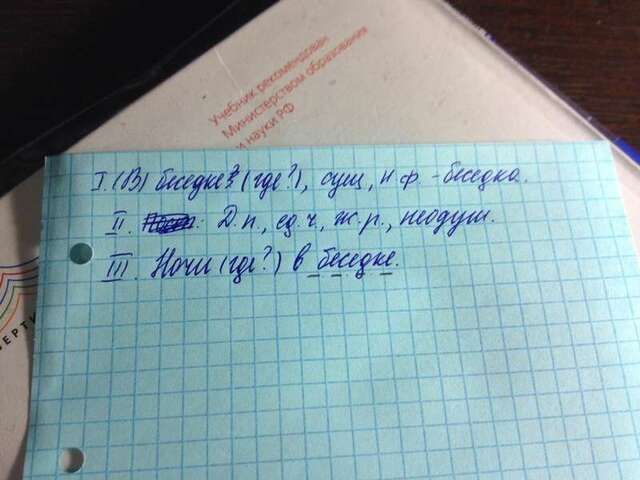 Учебник рекомендован
Министерством образования
и науки РФ
I. (В) беседке³ (где?), сущ., н.ф. - беседка.
II. Д.п., ед.ч., ж.р., неодуш.
III. Ночи (где?) в беседке.